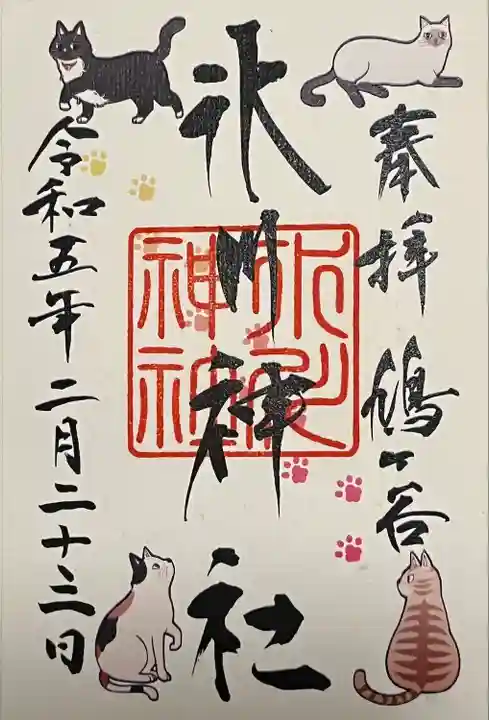 奉拝 鳩ヶ谷
氷川神社
氷川神社
令和五年二月二十三日